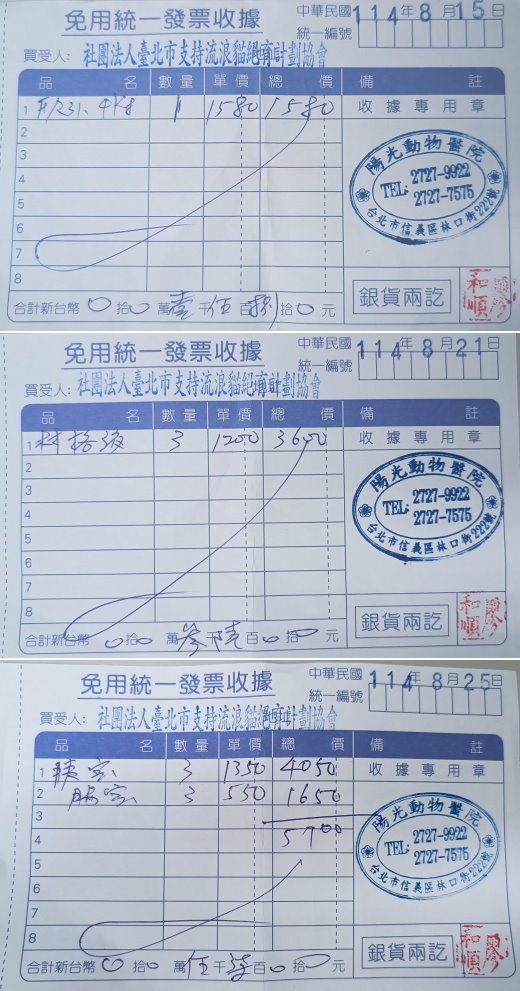 免用統一發票收據
中華民國 114年8月15日
統一編號
買受人: 社團法人臺北市支持流浪貓絕育計劃協會
品名 數量 單價 總價 備註
1 1 1580 1580 收據專用章
2
3
4
5
6
7
8
陽光動物醫院
TEL: 2727-9922
2727-7575
台北市信義區林口街222號
合計新台幣 0 拾 0 萬 壹 千 伍 百 捌 拾 0 元
銀貨兩訖
廖和順
免用統一發票收據
中華民國 114年8月21日
統一編號
買受人: 社團法人臺北市支持流浪貓絕育計劃協會
品名 數量 單價 總價 備註
1 3 1200 3600 收據專用章
2
3
4
5
6
7
8
陽光動物醫院
TEL: 2727-9922
2727-7575
台北市信義區林口街222號
合計新台幣 0 拾 0 萬 參 千 百 0 拾 0 元
銀貨兩訖
廖和順
免用統一發票收據
中華民國 114年8月25日
統一編號
買受人: 社團法人臺北市支持流浪貓絕育計劃協會
品名 數量 單價 總價 備註
1 3 1350 4050 收據專用章
2 3 550 1650
3
4 5700
5
6
7
8
陽光動物醫院
TEL: 2727-9922
2727-7575
台北市信義區林口街222號
合計新台幣 0 拾 0 萬 伍 千 百 0 拾 0 元
銀貨兩訖
廖和順